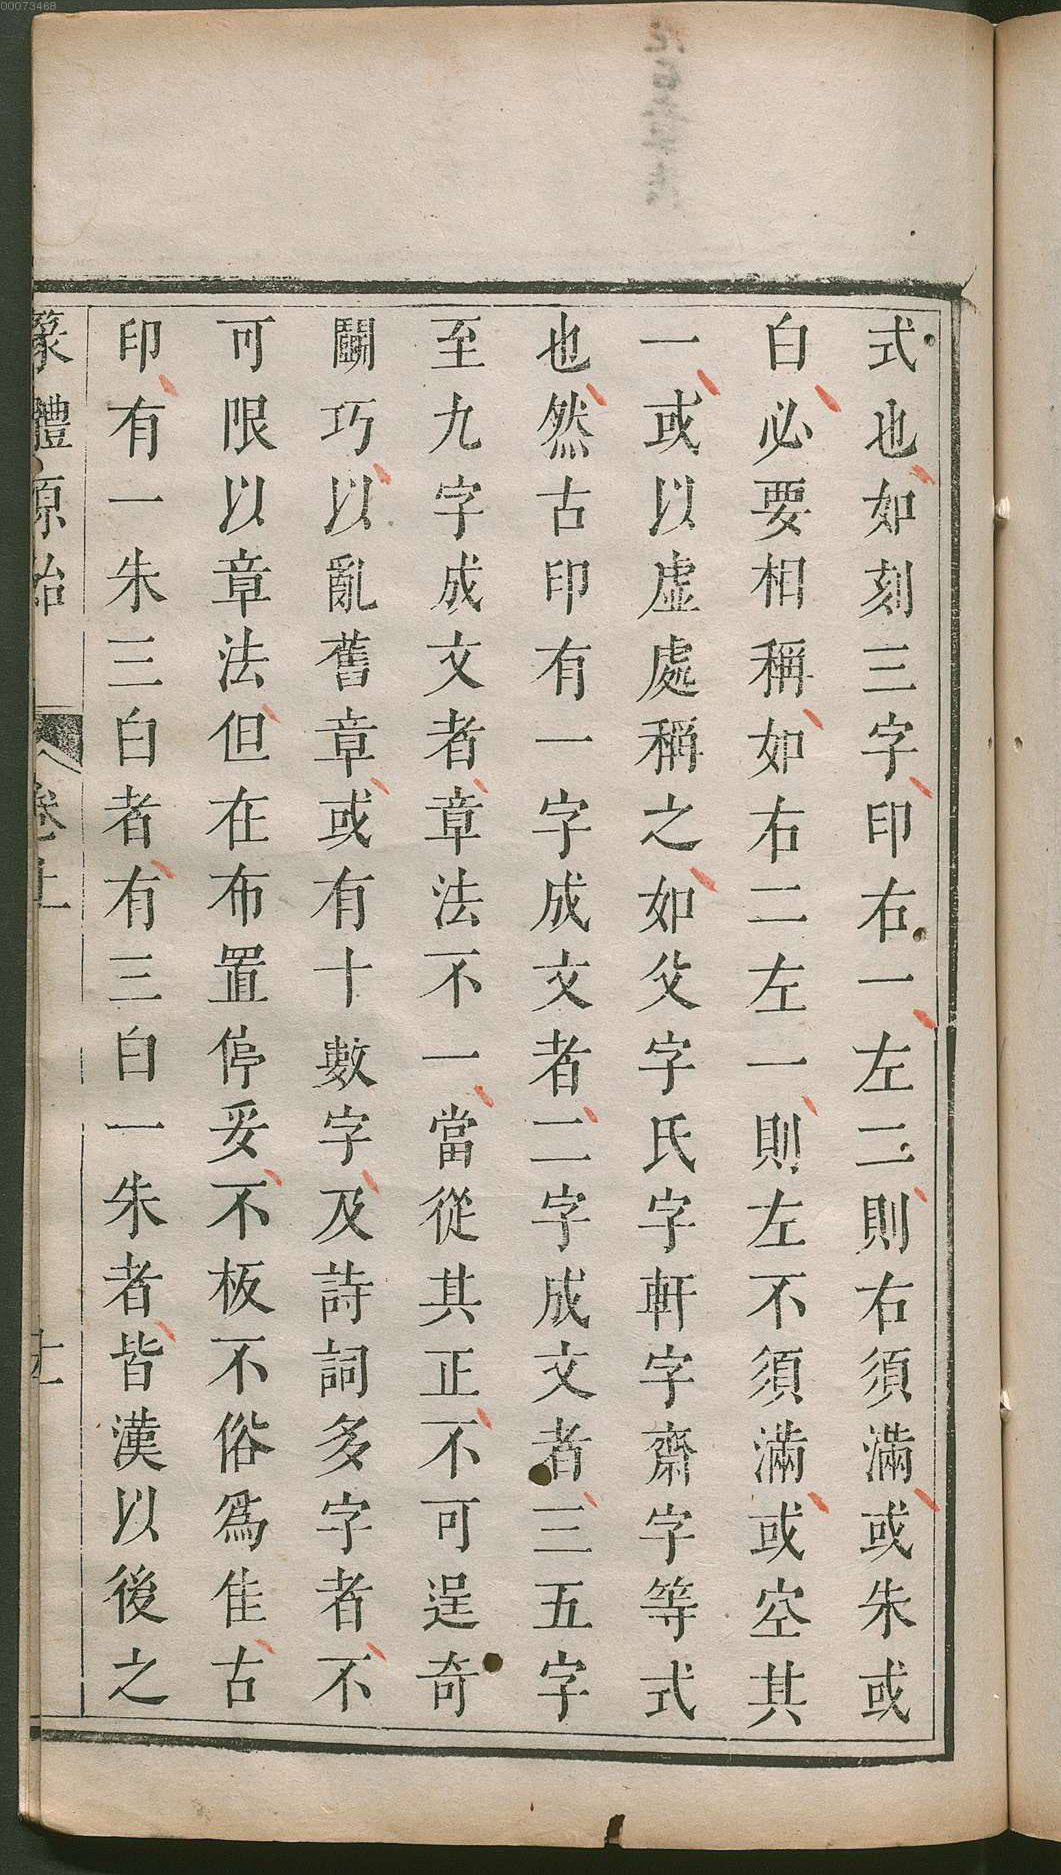 00073468
式也如刻三字印右一左二則右須滿或朱或
白必要相稱如右二左一則左不須滿或空其
一或以虛處稱之如父字氏字軒字齋字等式
也然古印有一字成文者二字成文者三五字
至九字成文者章法不一當從其正不可逞奇
鬭巧以亂舊章或有十數字及詩詞多字者不
可限以章法但在布置停妥不板不俗爲佳古
印有一朱三白者有三白一朱者皆漢以後之
篆體原始
卷上